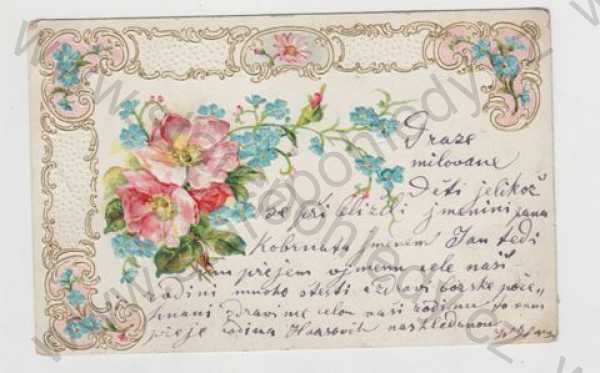 Draze
milovane
Děti jelikož
se při bliždi jmenini pana
Kobrnata jmenem Jan tedi
přejem vjmenu cele naši
rodini mnoho štesti zdravi božske pože„
hnani zdravi me celou naši rodinu to vam
přeje rodina naskledanou